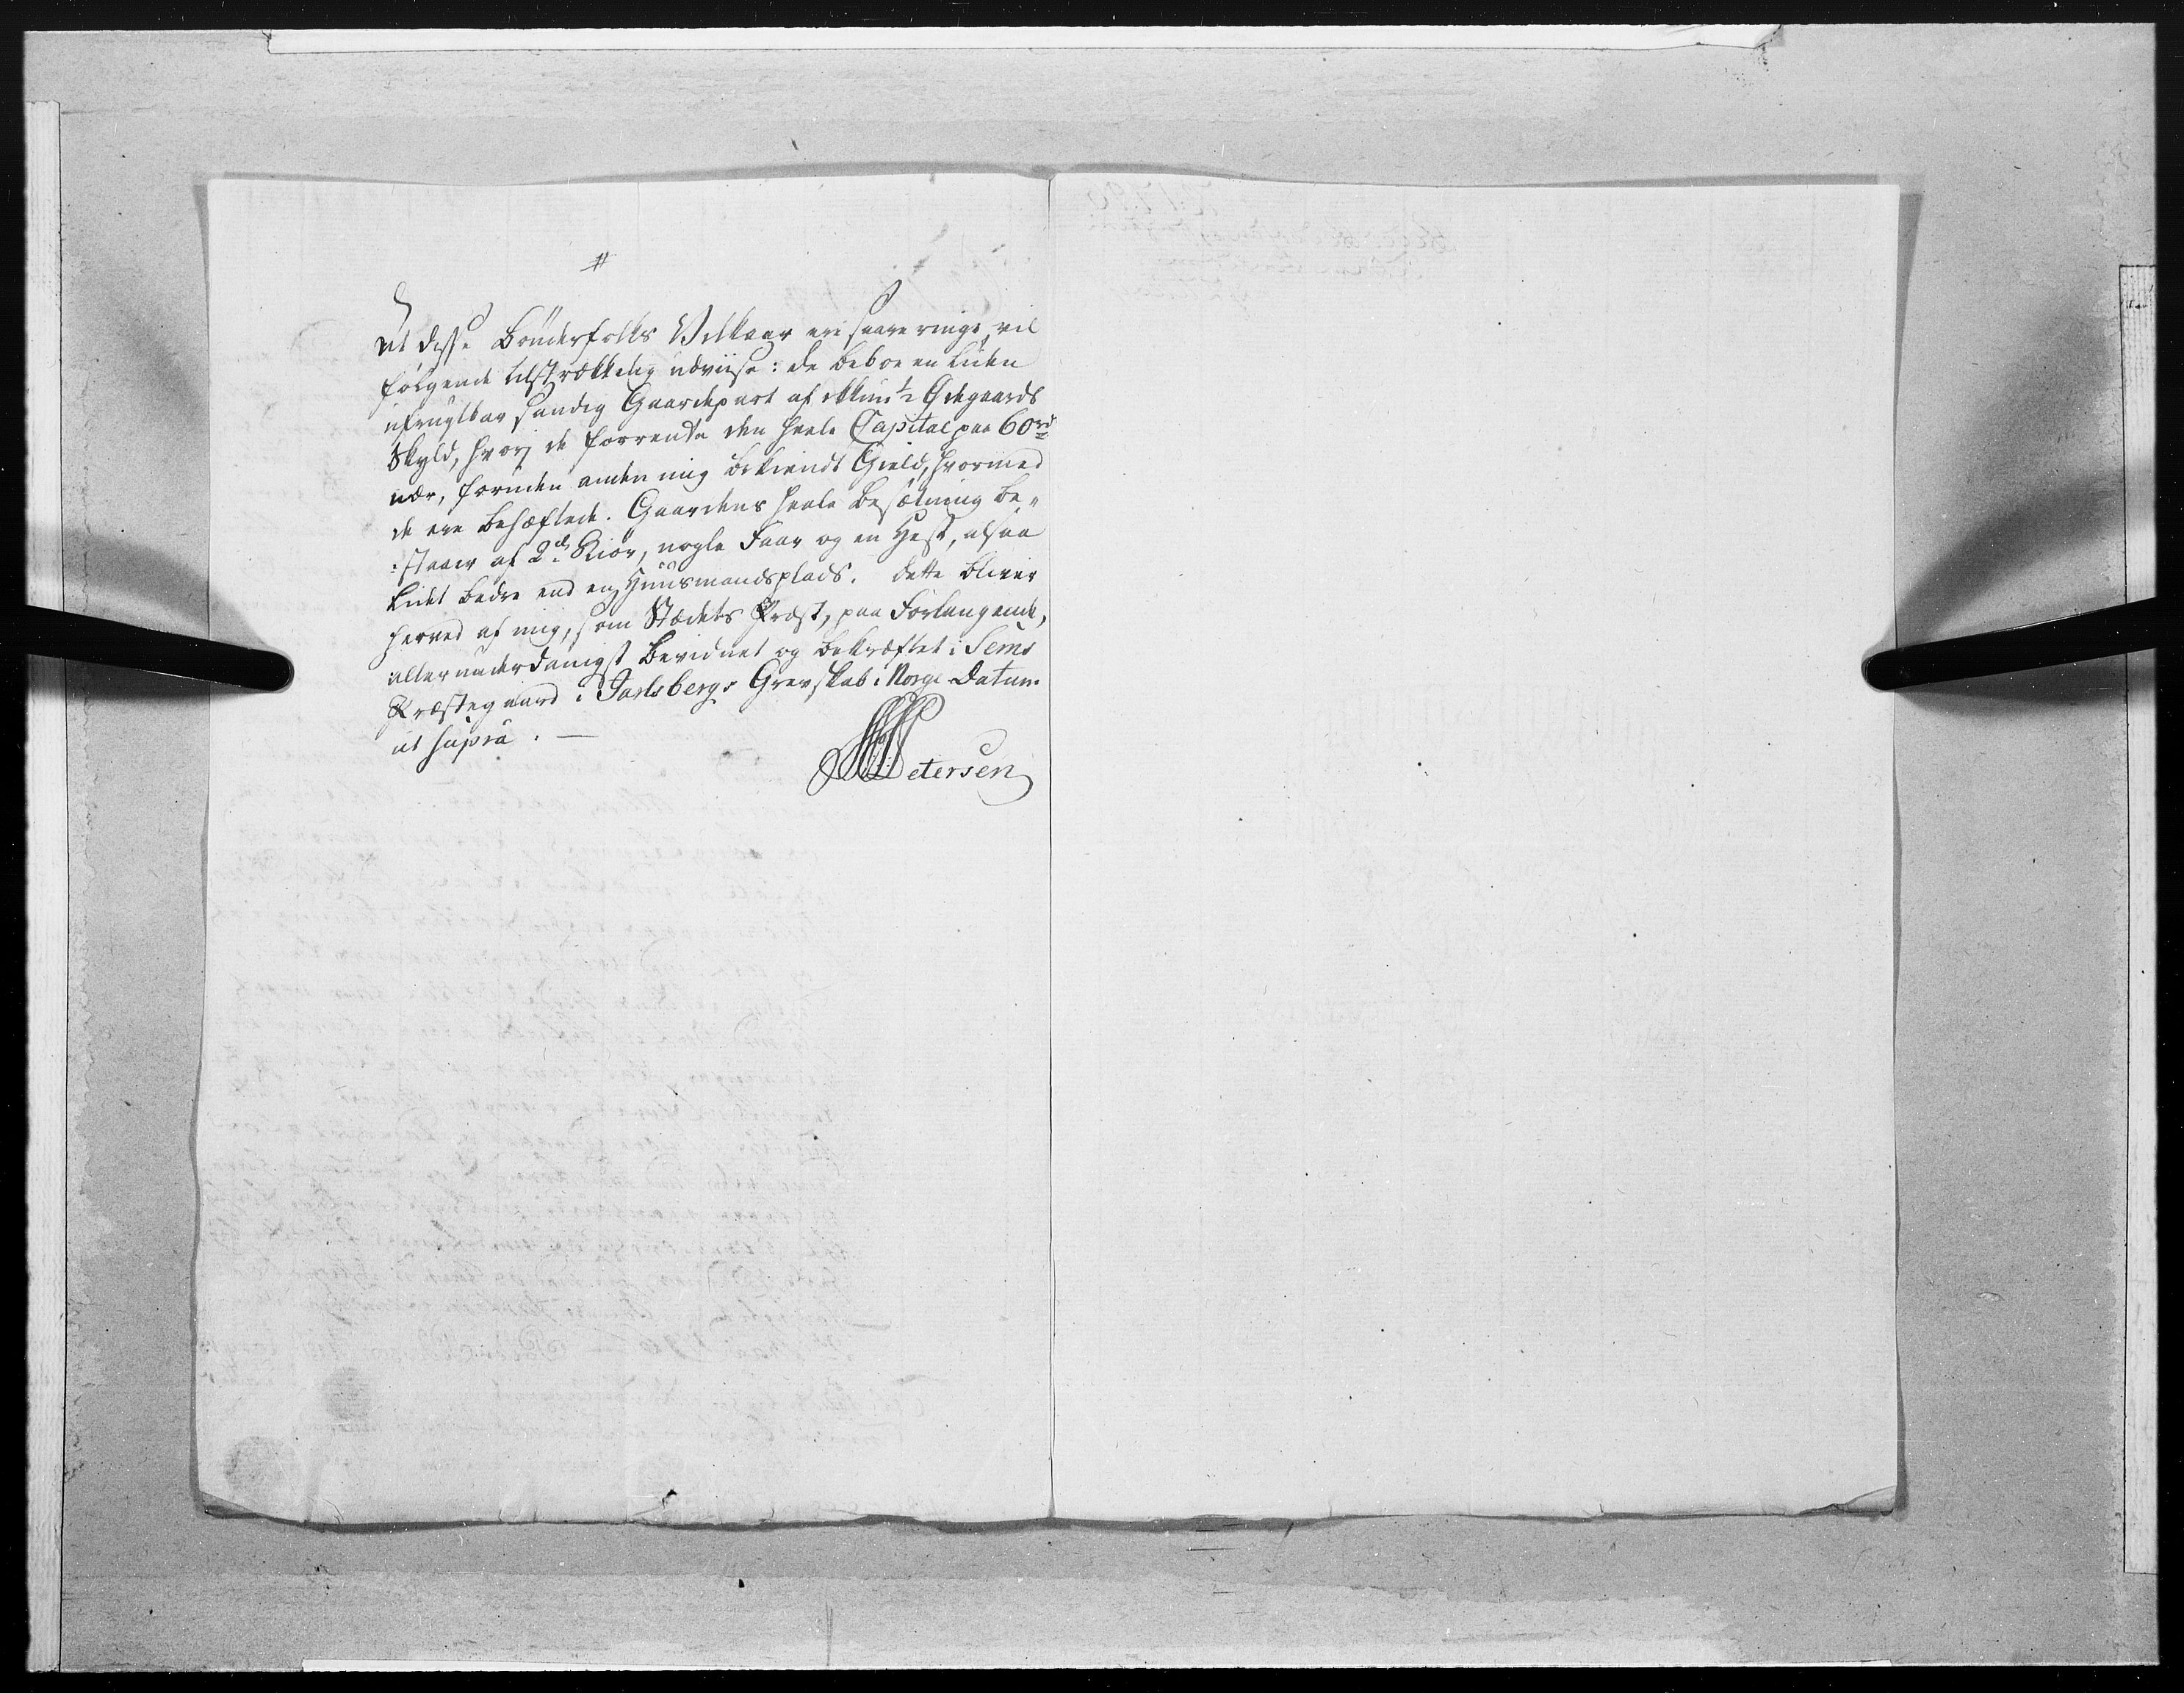 #
At disse Bønderfolks Vilkaar ere saare ringe, vil
følgende tilstrækkelig udviise: de beboe en liden
ufrugtbar sandig Gaardepart af ikkun ½ Ødegaards
Skyld, hvorj de forrenta den heele Capital paa 60rd
nær, foruden anden mig bekiendt Gield, hvormed
de ere behæftede. Gaardens heele Besætning be-
:staaer af 2de Kiør, nogle Faar og en Hest, altsaa
lidet bedre end en Huusmandsplads. dette bliver
herved af mig, som Stædets Præst, paa Forlangende,
allerunderdanigst bevidnet og bekræftet i Sems
Præstegaard i Jarlsbergs Grevskab i Norge Datum
ut supra. —
Petersen